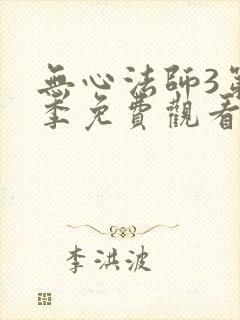 無心法師3第
季免費觀看
李洪波